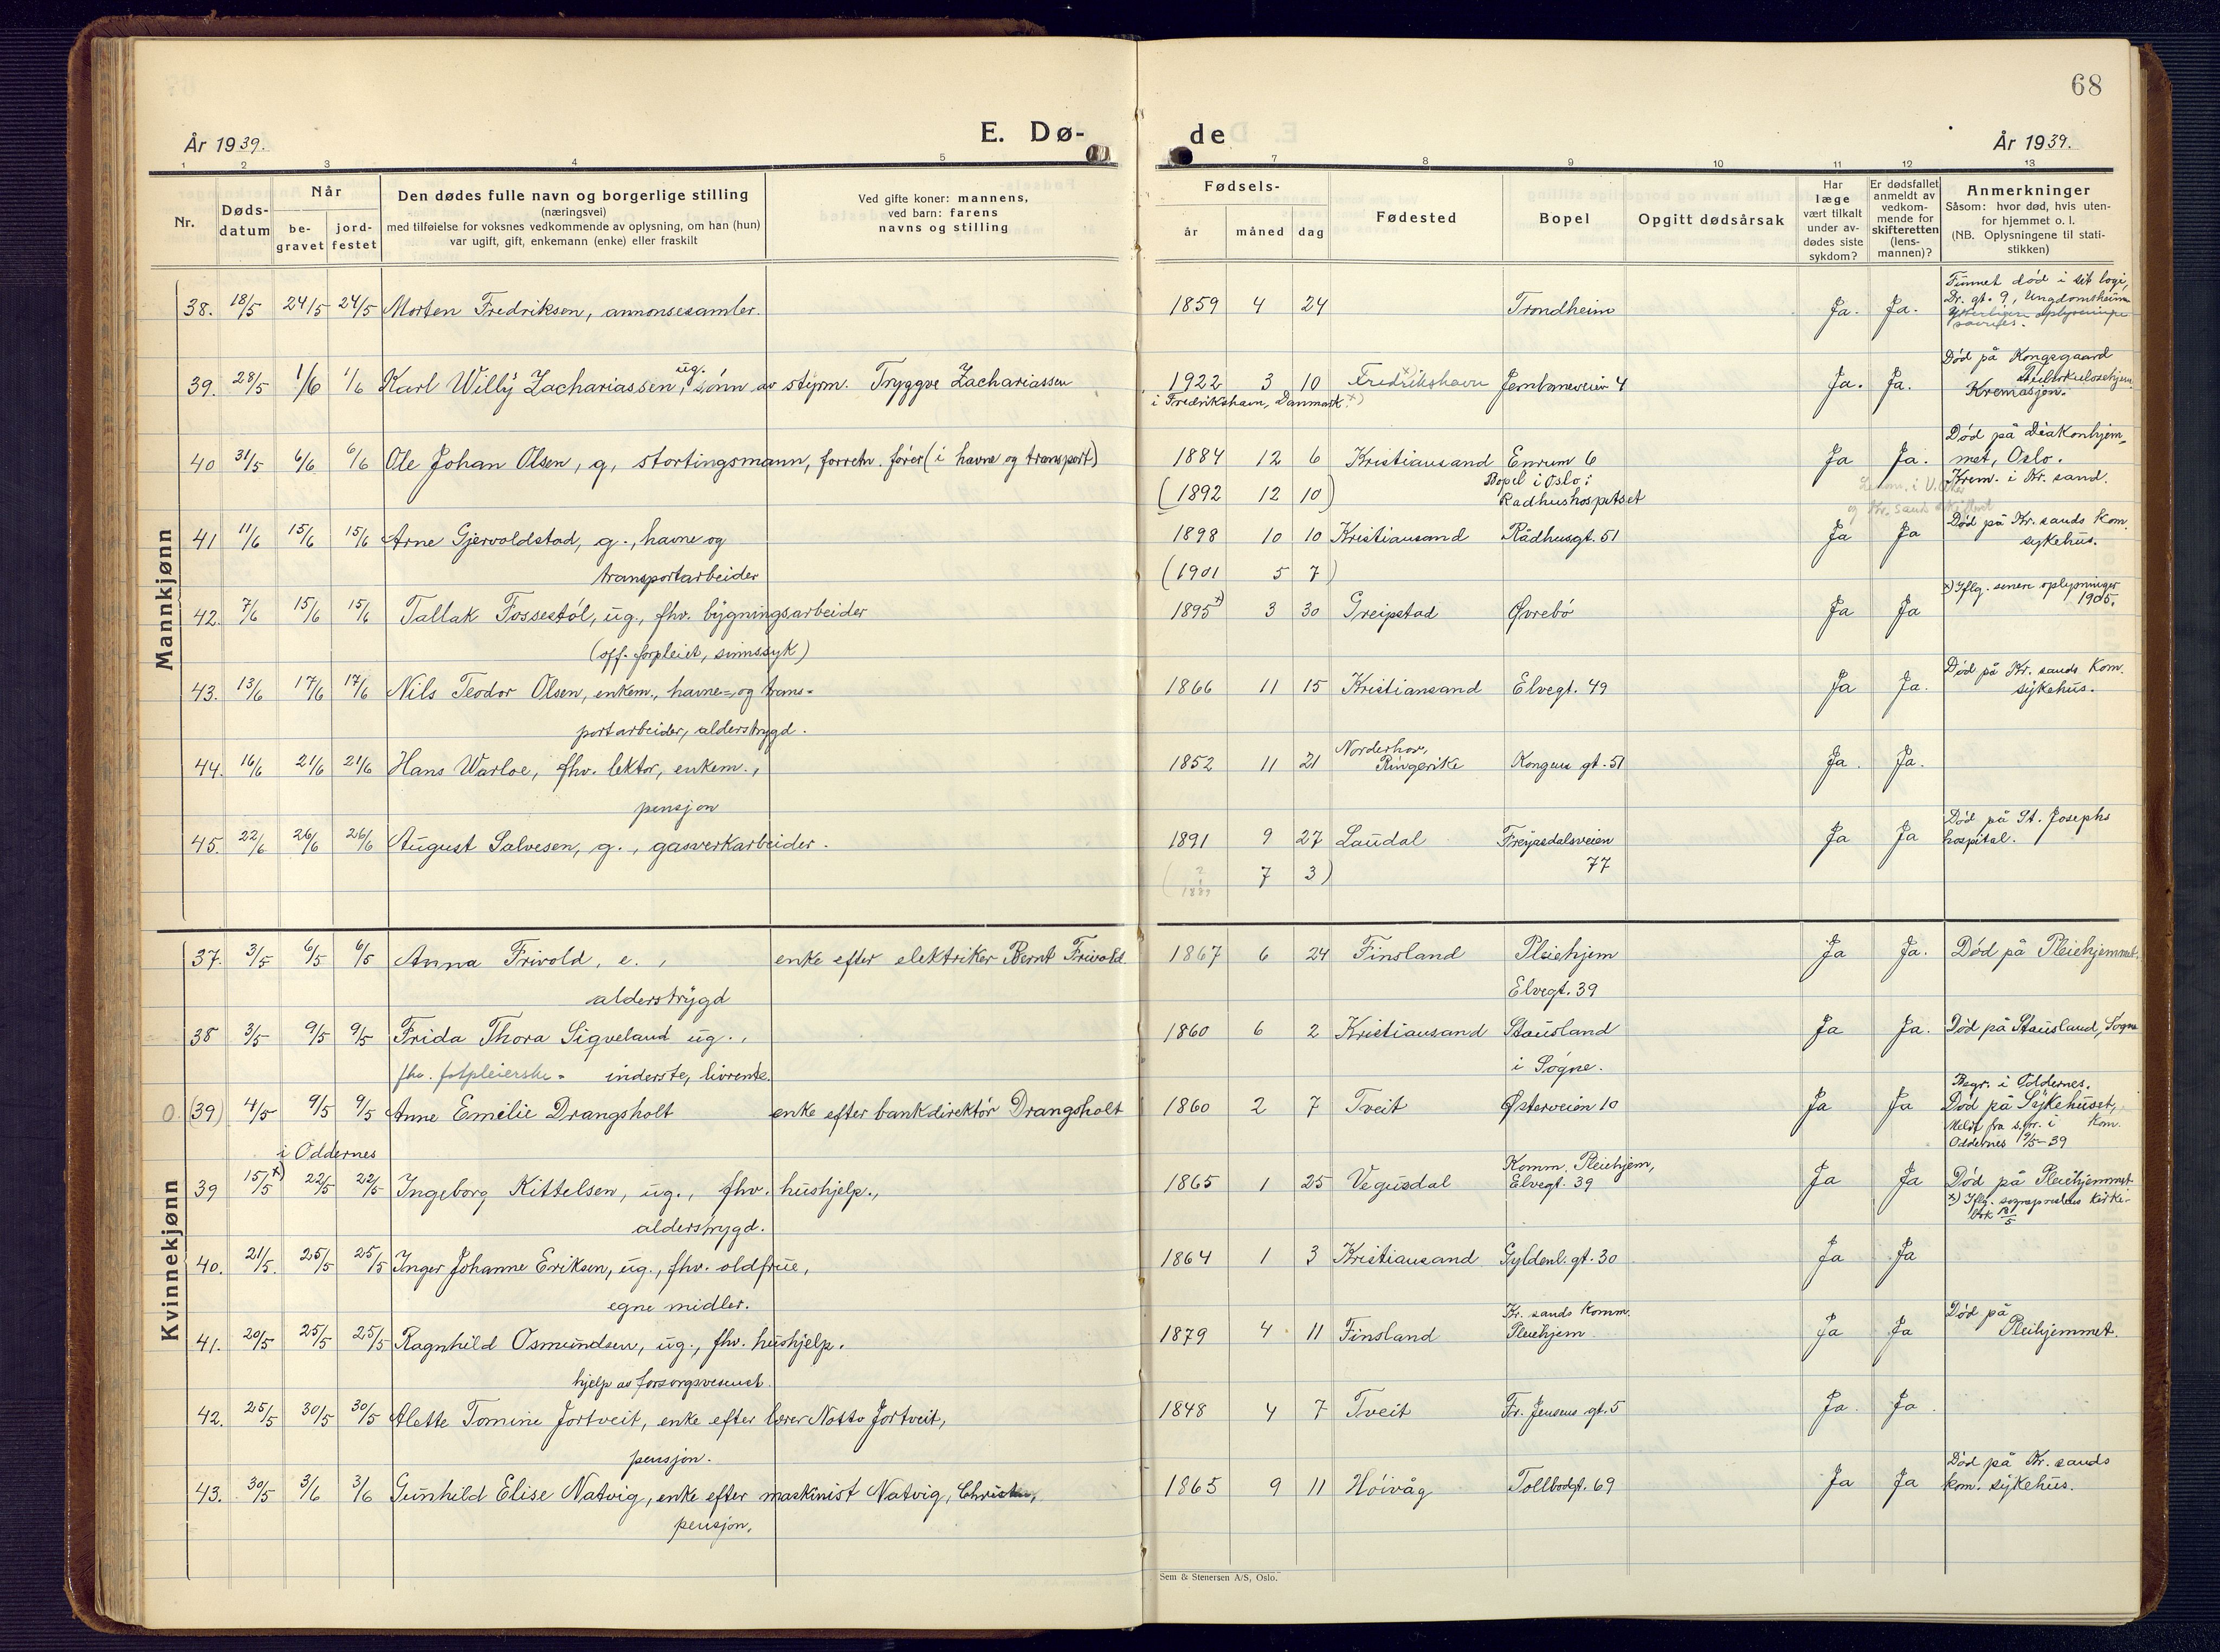 68
År 1939.
E. Dø-
de
År 1939.
1 2 3 4 5 7 8 9 10 11 12 13
Nr.
Døds-
datum
Når
be-
gravet
jord-
festet
Den dødes fulle navn og borgerlige stilling
(næringsvei)
med tilføielse for voksnes vedkommende av oplysning, om han (hun)
var ugift, gift, enkemann (enke) eller fraskilt
Ved gifte koner: mannens,
ved barn: farens
navns og stilling
Fødsels-
år måned dag
Fødested
Bopel
Opgitt dødsårsak
Har
læge
vært tilkalt
under av-
dødes siste
sykdom?
Er dødsfallet
anmeldt av
vedkom-
mende for
skifteretten
(lens-
mannen)?
Anmerkninger
Såsom: hvor død, hvis uten-
for hjemmet o. l.
(NB. Oplysningene til stati-
stikken)
Mannkjønn
38. 18/5 24/5 24/5 Morten Fredriksen, annonsesamler. 1859 4 24 Trondheim Ja. Ja. Funnet død i sit logi,
Dr. gt. 9, Ungdomsheim
39. 28/5 1/6 1/6 Karl Willy Zachariassen, ug. sønn av styrm. Tryggve Zachariassen 1922 3 10 Fredrikshavn Jernbaneveien 4 Ja. Ja. Død på Kongsgaard
Tuberkulosehjem.
i Fredrikshavn, Danmark x)
Kremasjon.
40 31/5 6/6 6/6 Ole Johan Olsen, g, stortingsmann, forretn. fører (i havne og transport) 1884 12 6 Kristiansand Enrum 6 Ja Ja. Død på Diakonhjem-
met, Oslo.
Krem. i Kr. sand.
(1892 12 10)
Bopel i Oslo:
Rådhushospitset
41 11/6 15/6 15/6 Arne Gjervoldstad, g., havne og
transportarbeider
1898 10 10 Kristiansand Rådhusgt. 51 Ja Ja Død på Kr. sands Kom.
sykehus.
(1901 5 7)
42. 7/6 15/6 15/6 Tallak Fossestøl, ug., fhv. bygningsarbeider
(off. forpleiet, sinnssyk)
1895 x) 3 30 Greipstad Øvrebø Ja Ja x) Iflg. senere oplysninger
1905.
43. 13/6 17/6 17/6 Nils Teodor Olsen, enkem., havne- og trans-
portarbeider, alderstrygd.
1866 11 15 Kristiansand Elvegt. 49 Ja Ja. Død på Kr. sands Kom.
sykehus.
44. 16/6 21/6 21/6 Hans Warloe, fhv. lektor, enkem.,
pensjon
1852 11 21 Norderhov,
Ringerike Kongens gt. 51 Ja. Ja.
45. 22/6 26/6 26/6 August Salvesen, g., gasverkarbeider.
1891 9 27 Laudal Frejasdalsveien
77 Ja Ja Død på St. Josephs
hospital.
( 7 3)
Kvinnekjønn
37. 3/5 6/5 6/5 Anna Frivold, e., enke efter elektriker Bernt Frivold.
alderstrygd
1867 6 24 Finsland Pleiehjem
Elvegt. 39 Ja Ja. Død på Pleiehjemmet.
38 3/5 9/5 9/5 Frida Thora Sigveland ug.,
fhv. fotpleierske - inderste, livrente.
1860 6 2 Kristiansand Stausland
i Søgne. Ja Ja. Død på Stausland, Søgne
O. (39) 4/5 9/5 9/5 Anne Emilie Drangsholt enke efter bankdirektør Drangsholt
i Oddernes
1860 2 7 Tveit Østerveien 10 Ja Ja Begr. i Oddernes.
Død på Sykehuset,
Kom.
Meldt fra s.pr. i
Oddernes 9/5-39
39 15/5 x) 22/5 22/5 Ingeborg Kittelsen, ug., fhv. hushjelp.,
alderstrygd.
1865 1 25 Vegusdal Komm. Pleiehjem,
Elvegt. 39 Ja Ja Død på Pleiehjemmet
x) Iflg. sogneprestens kirke-
bok 18/5
40. 21/5. 25/5 25/5 Inger Johanne Eriksen, ug., fhv. oldfrue,
egne midler.
1864 1 3 Kristiansand Gyldenl. gt. 30 Ja Ja
41. 20/5 25/5 25/5 Ragnhild Osmundsen, ug., fhv. hushjelp.
hjelp av forsorgsvesenet.
1879 4 11 Finsland Kr. sands Komm.
Pleiehjem Ja Ja Død på
Pleihjemmet.
42. 25/5 30/5 30/5 Alette Tomine Jortveit, enke efter lærer Notto Jortveit,
pensjon.
1848 4 7 Tveit Fr. Jensens gt. 5 Ja. Ja.
43. 30/5 3/6 3/6 Gunhild Elise Natvig, enke efter maskinist Natvig,
pensjon,
1865 9 11 Høivåg Tollbodgt. 69 Ja Ja Død på Kr. sands
kom. sykehus.
Sem & Stenersen A/S, Oslo.